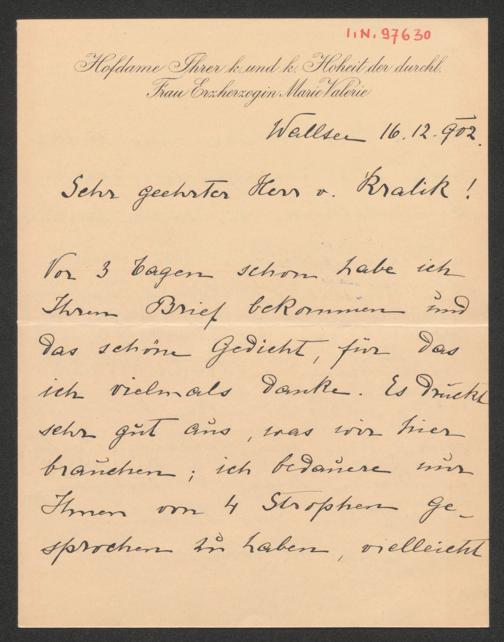 I.N. 97630
Hofdame Ihrer k. und k. Hoheit der durchl.
Frau Erzherzogin Marie Valerie
Wallsee 16.12.902.
Sehr geehrter Herr v. Kralik!
Vor 3 Tagen schon habe ich
Ihren Brief bekommen und
das schöne Gedicht, für das
ich vielmals danke. Es drückt
sehr gut aus, was wir hier
brauchen; ich bedauere nur
Ihnen von 4 Strophen ge-
sprochen zu haben, vielleicht